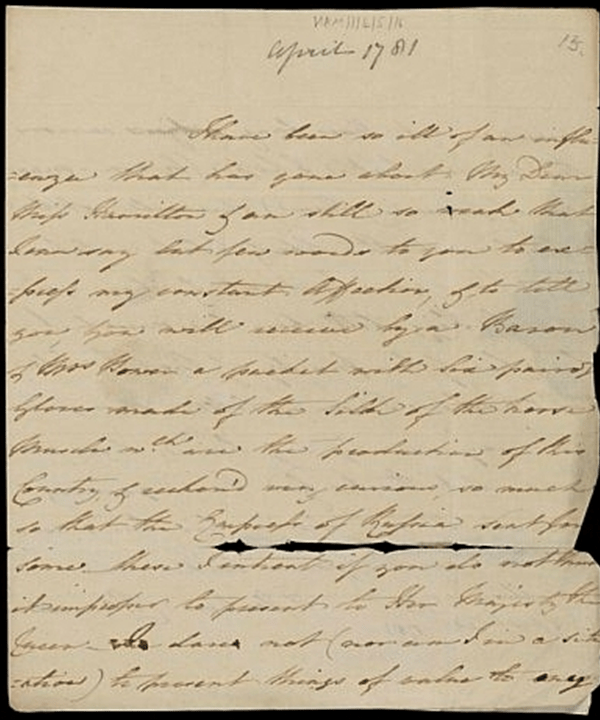 HAM/1/6/5/6
April 1781
13.
I have been so ill of an influ-
-enza that has gone about My Dear
Miss Hamilton & am still so weak that
I can say but few words to you to ex=
-press my constant Affection, & to tell
you, you will receive by a Baron
& Mrs a packet with six pairs
Gloves made of the Silk of the horse
Muscle wch are the production of this
Country & reckon'd very curious so much
so that the Empress of Russia sent for
some these I intreat if you do not think
it improper to present to Her Majesty the
Queen I dare not (nor am I in a situ
-ation) to present things of value to any